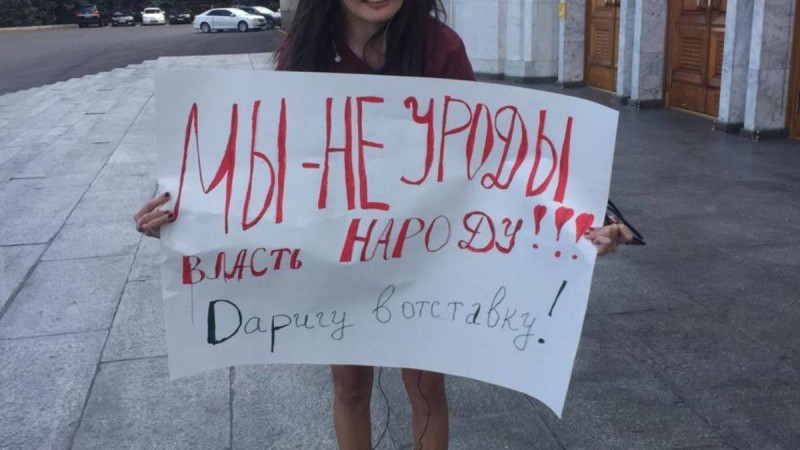 МЫ-НЕ УРОДЫ
ВЛАСТЬ НАРОДУ!!!
Даригу в отставку!